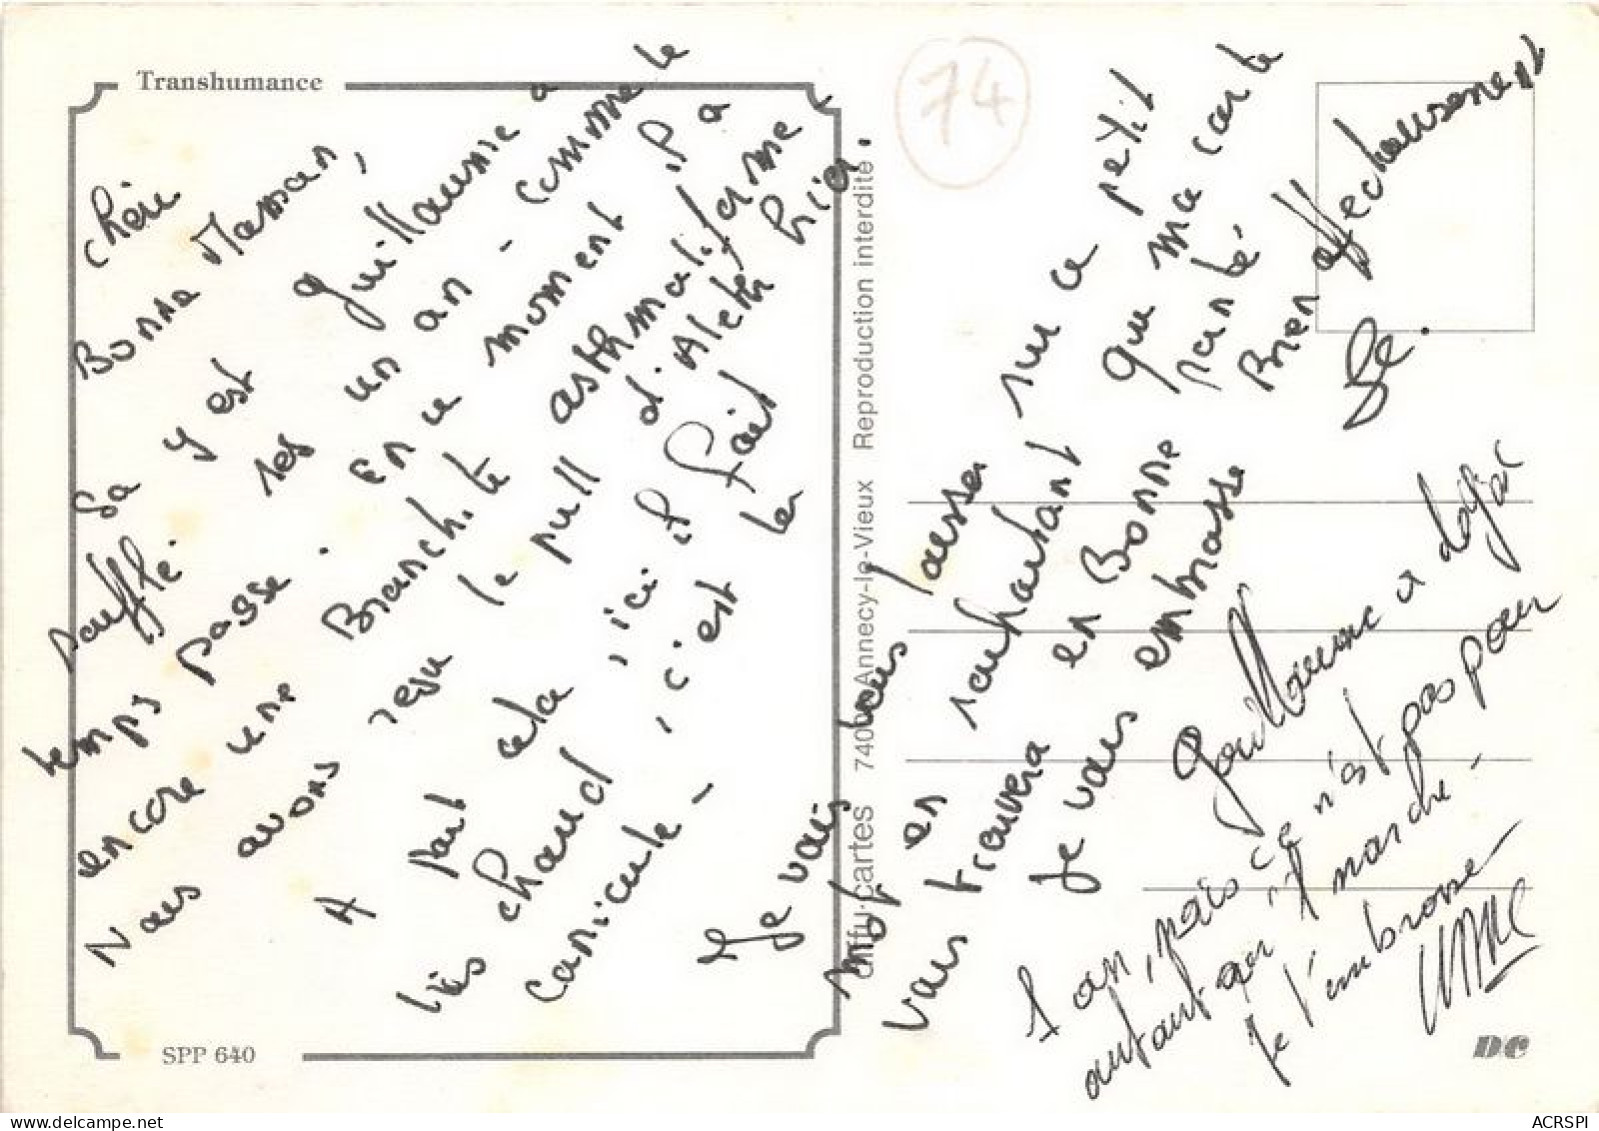 Transhumance
74
Chère
Bonne Maman,
Sa y est Guillaume a
soufflé ses un an - comme le
temps passe. En ce moment il a
encore une Bronchite asthmatiforme
Nous avons reçu le pull d'Aleth
A part cela, ici il fait
très chaud, c'est la
canicule -
Je vais vous laisser sur ce petit
mot en souhaitant que ma carte
vous trouvera en Bonne santé
Je vous embrasse Bien affectueusement
Guillaume a déjà
1 an, mais ce n'est pas pour
autant qu'il marche -
Je t'embrasse -
diffu-cartes 74000 Annecy-le-Vieux Reproduction interdite
SPP 640
DC
ACRSPI